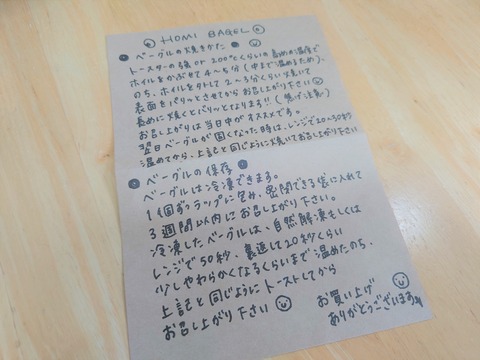 HOMI BAGEL
ベーグルの焼きかた
トースターの強 or 200℃くらいの高めの温度で
ホイルをかぶせて4~5分(中まで温めるため)、
のち、ホイルを外して2~3分くらい焼いて
表面をパリッとさせてからお召し上がり下さい
長めに焼くとバリッとなります!!(焦げ注意)
お召し上がりは当日中がオススメです。
翌日ベーグルが固くなった時は、レンジで20~30秒
温めてから、上記と同じように焼いてお召し上がり下さい
ベーグルの保存
ベーグルは冷凍できます。
1個ずつラップに包み、密閉できる袋に入れて
3週間以内にお召し上がり下さい。
冷凍したベーグルは、自然解凍もしくは
レンジで50秒、裏返して20秒くらい
少しやわらかくなるくらいまで温めたのち、
上記と同じようにトーストしてから
お召し上がり下さい
お買い上げ
ありがとうございます